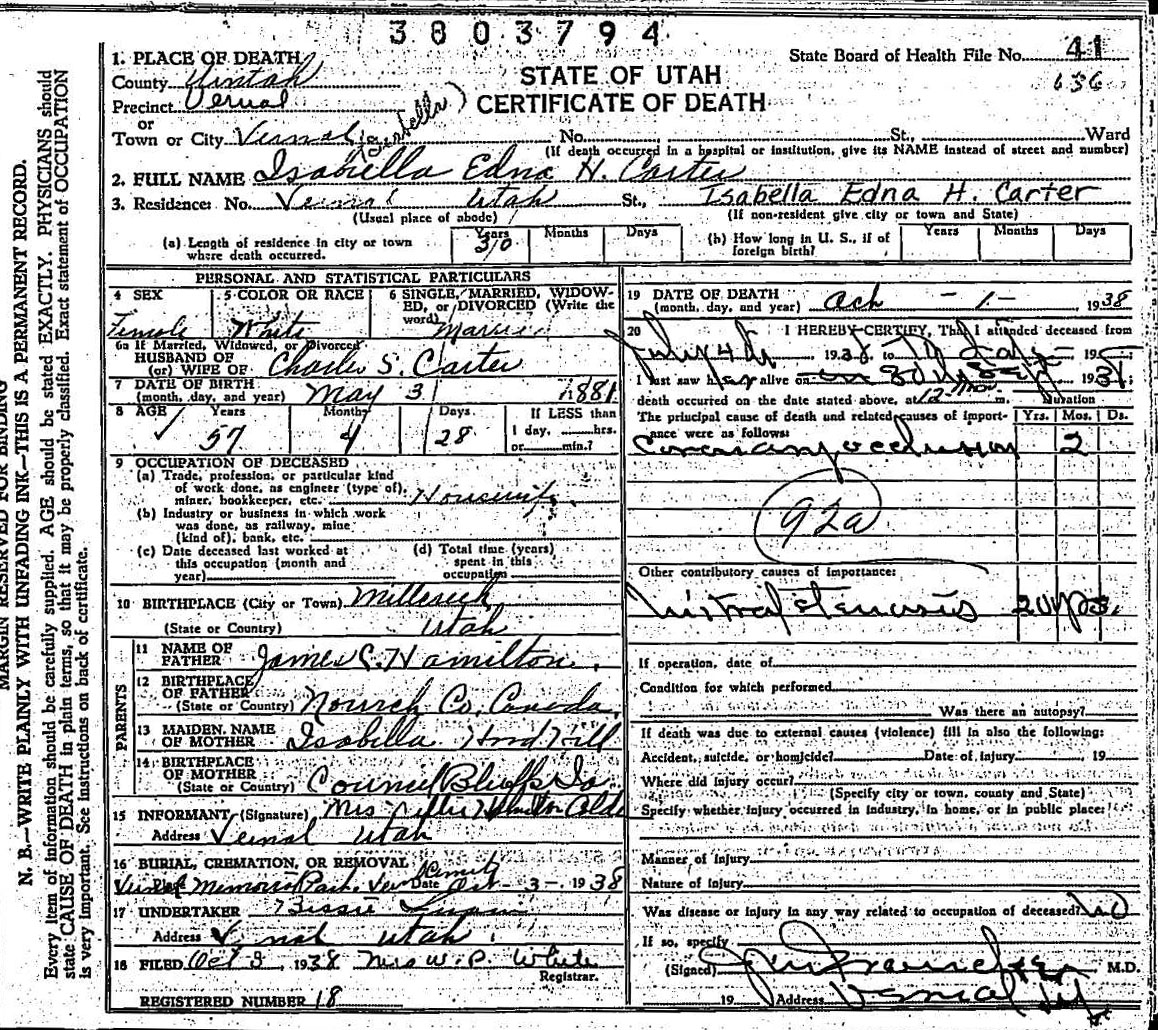 3803794
State Board of Health File No. 41
636
STATE OF UTAH
CERTIFICATE OF DEATH
1. PLACE OF DEATH
County Uintah
Precinct Vernal
or
Town or City Vernal (Isabella) No. St., Ward
(If death occurred in a hospital or institution, give its NAME instead of street and number)
2. FULL NAME Isabella Edna H. Carter
3. Residence: No. Vernal Utah St., Isabella Edna H. Carter
(Usual place of abode) (If non-resident give city or town and State)
(a) Length of residence in city or town where death occurred. Years 30 Months Days
(b) How long in U. S., if of foreign birth? Years Months Days
PERSONAL AND STATISTICAL PARTICULARS
4 SEX Female
5 COLOR OR RACE White
6 SINGLE, MARRIED, WIDOWED, or DIVORCED (Write the word) Married
6a If Married, Widowed, or Divorced
HUSBAND OF
(or) WIFE OF Charles S. Carter
7 DATE OF BIRTH
(month, day, and year) May 3 1881
8 AGE Years 57 Months 4 Days 28 If LESS than 1 day, hrs. or min.?
9 OCCUPATION OF DECEASED
(a) Trade, profession, or particular kind
of work done, as engineer (type of),
miner, bookkeeper, etc. Housewife
(b) Industry or business in which work
was done, as railway, mine
(kind of), bank, etc.
(c) Date deceased last worked at
this occupation (month and
year)
(d) Total time (years)
spent in this
occupation
10 BIRTHPLACE (City or Town) Millcreek
(State or Country) Utah
PARENTS
11 NAME OF
FATHER James C. Hamilton
12 BIRTHPLACE
OF FATHER
(State or Country) Co. Canada
13 MAIDEN NAME
OF MOTHER Isabella Hill
14 BIRTHPLACE
OF MOTHER
(State or Country) Council Bluffs Ia.
15 INFORMANT (Signature) Mrs Hamilton
Address Vernal Utah
16 BURIAL, CREMATION, OR REMOVAL
Vernal Memorial Park Date Oct - 3 - 1938
17 UNDERTAKER Bessie
Address Vernal Utah
18 FILED Oct 3, 1938 Mrs W. P. White
Registrar.
REGISTERED NUMBER 18
19 DATE OF DEATH
(month, day, and year) Oct - 1 - 1938
20 I HEREBY CERTIFY, That I attended deceased from
July 4th, 1938, to 19
I last saw her alive on 19
death occurred on the date stated above, at 12 m. Duration
The principal cause of death and related causes of importance were as follows: Yrs. Mos. Ds.
Coronary occlusion 2
92a
Other contributory causes of importance:
Mitral stenosis 20 yrs.
If operation, date of
Condition for which performed
Was there an autopsy?
If death was due to external causes (violence) fill in also the following:
Accident, suicide, or homicide? Date of injury , 19
Where did injury occur?
(Specify city or town, county and State)
Specify whether injury occurred in industry, in home, or in public place:
Manner of injury
Nature of injury
Was disease or injury in any way related to occupation of deceased? No
If so, specify
(Signed) M.D.
19 Address Vernal Ut.
MARGIN RESERVED FOR BINDING
N. B.—WRITE PLAINLY WITH UNFADING INK—THIS IS A PERMANENT RECORD.
Every item of information should be carefully supplied. AGE should be stated EXACTLY. PHYSICIANS should
state CAUSE OF DEATH in plain terms, so that it may be properly classified. Exact statement of OCCUPATION
is very important. See instructions on back of certificate.